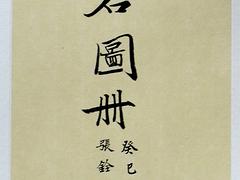 石圖册
癸巳
張銓